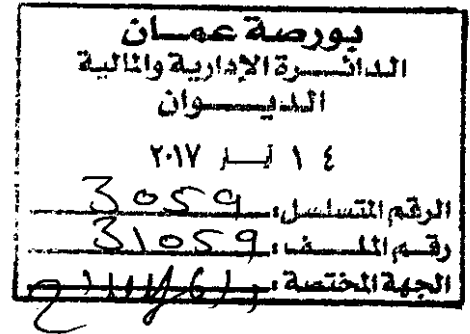 بورصة عمان
الدائرة الإدارية والمالية
الديوان
١٤ أيار ٢٠١٧
الرقم المتسلسل: 3059
رقم الملف: 31059
الجهة المختصة: